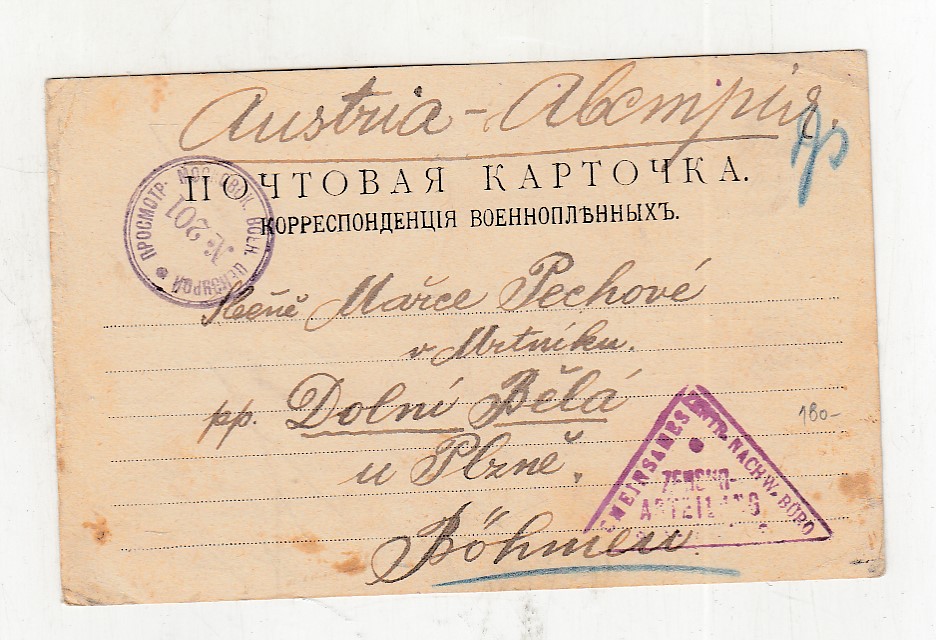 Austria - Австрія.
ПОЧТОВАЯ КАРТОЧКА.
КОРРЕСПОНДЕНЦІЯ ВОЕННОПЛѢННЫХЪ.
ПРОСМОТР. МОСКОВСК. ВОЕН. ЦЕНЗУРОЙ
№ 201
Mařce Pechové
v Mrtníku.
pp. Dolní Bělá
u Plzně.
Böhmen
GEMEINSAMES ZENTR. NACHW. BÜRO
ZENSUR-
ABTEILUNG
180-